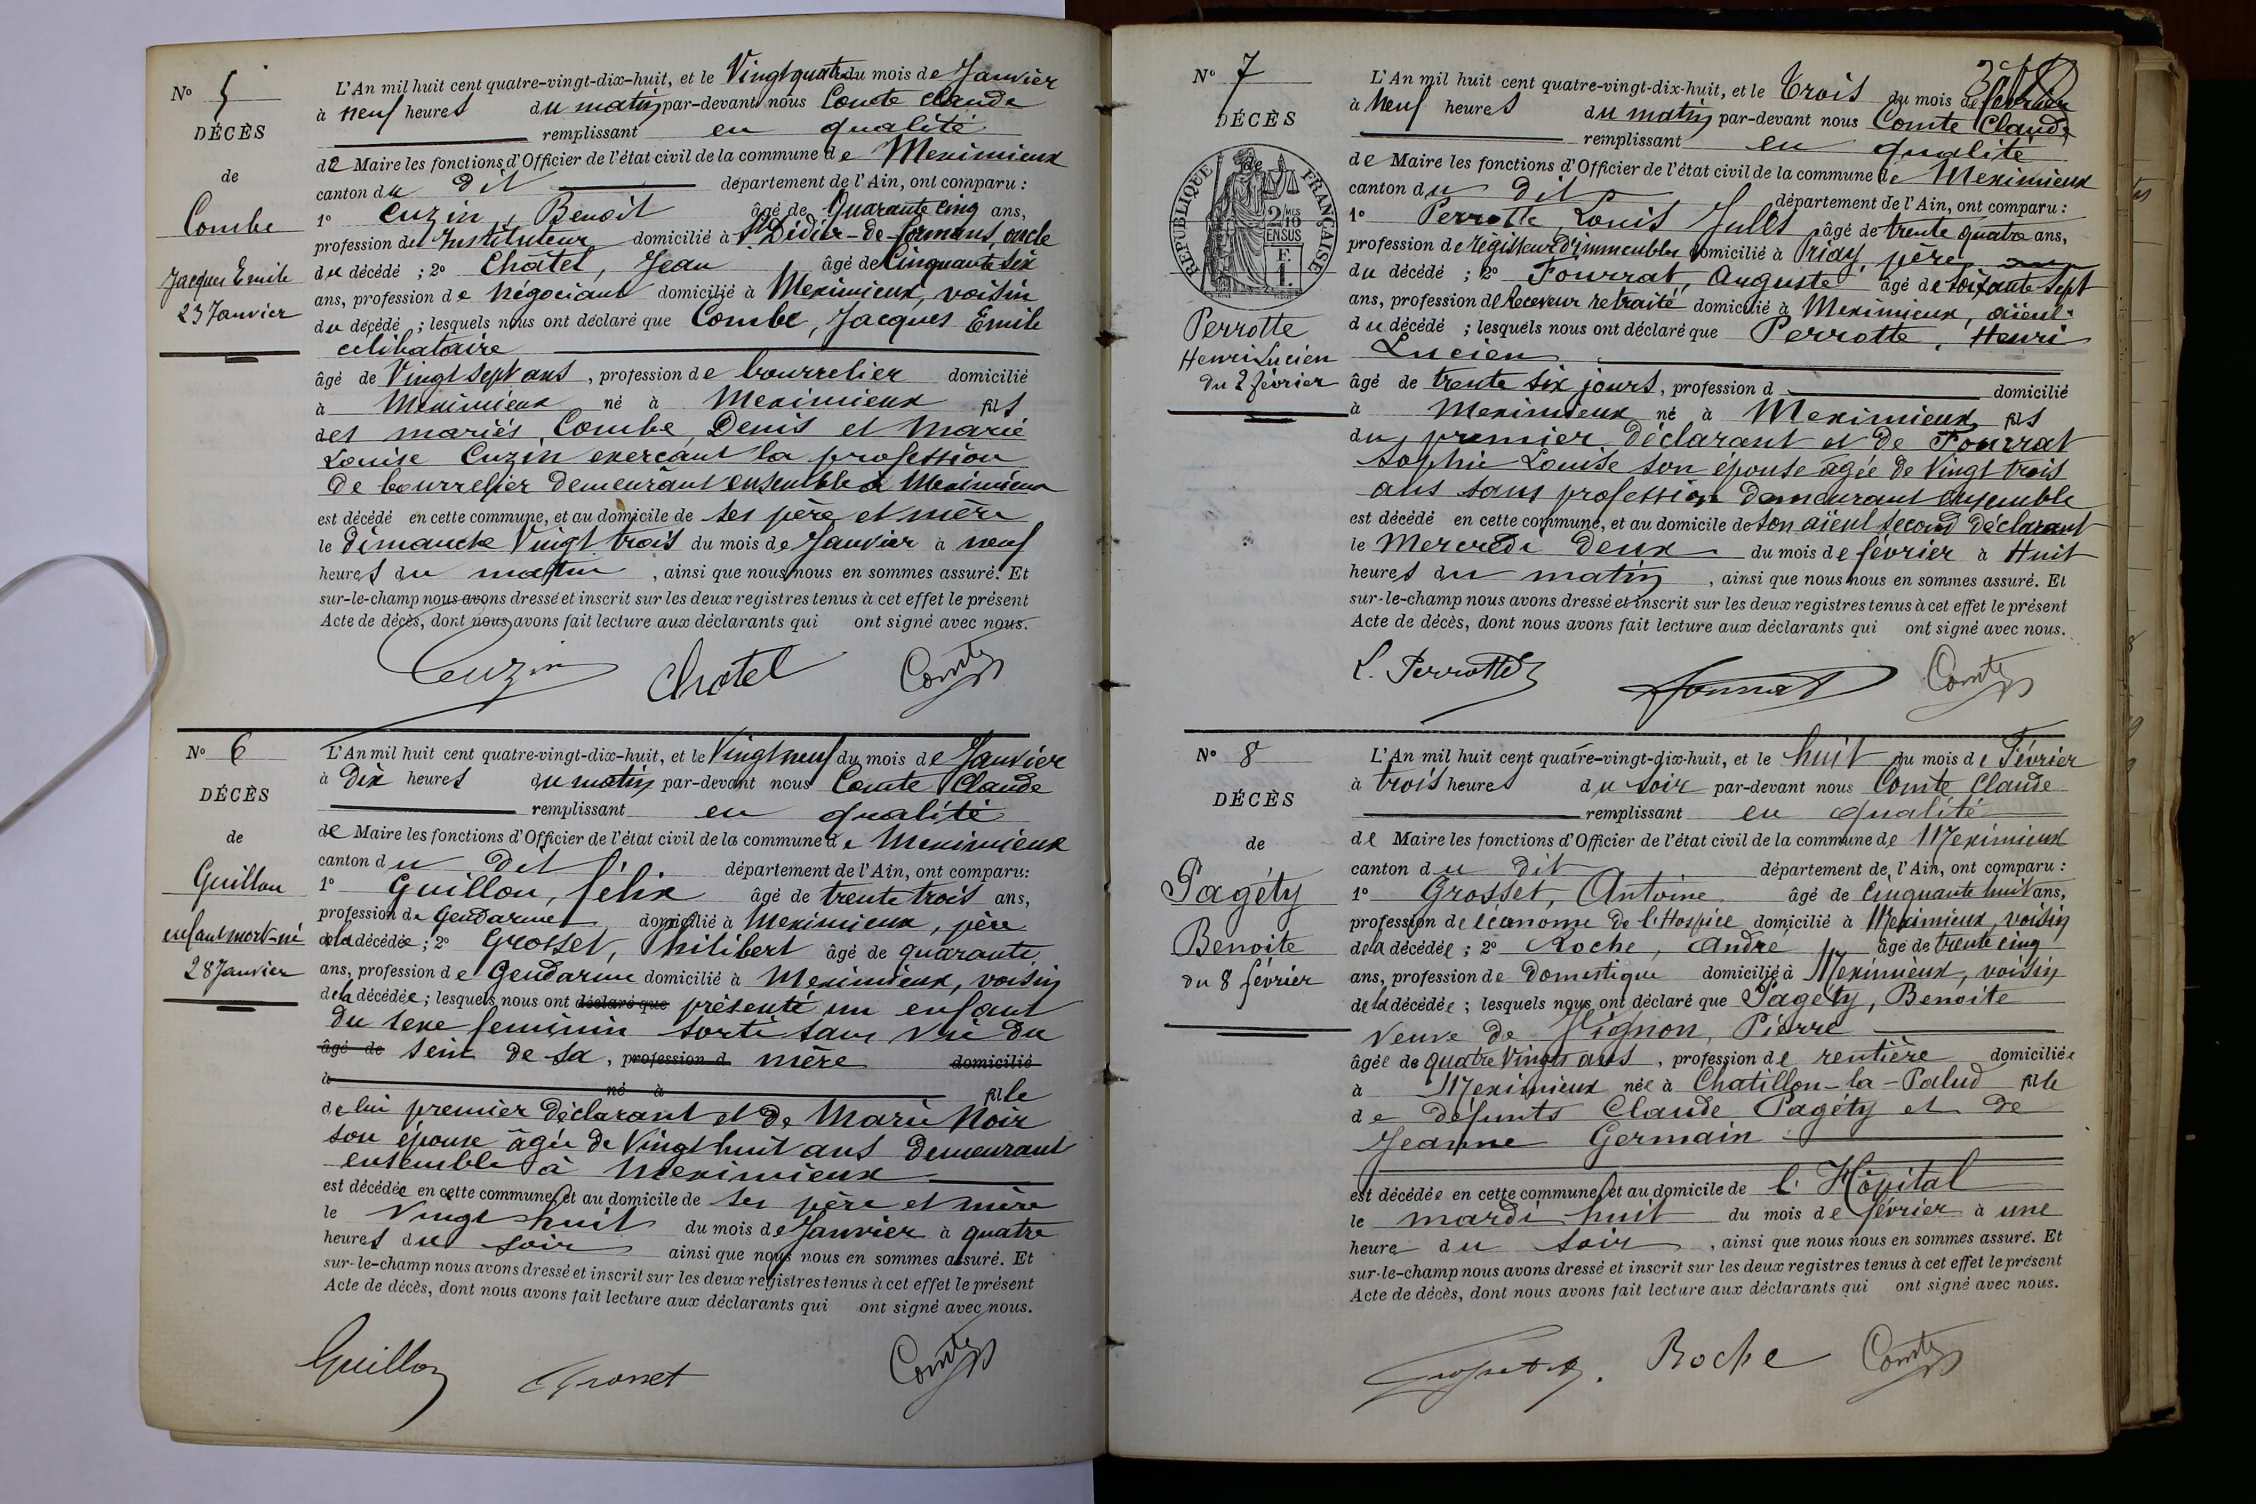 N° 5
DÉCÈS
de
Combe
Jacques Emile
23 Janvier
L'An mil huit cent quatre-vingt-dix-huit, et le Vingt quatre du mois de Janvier
à neuf heures du matin par-devant nous Comte Claude
remplissant en qualité
de Maire les fonctions d'Officier de l'état civil de la commune de Meximieux
canton du dit département de l'Ain, ont comparu :
1° Cuzin, Benoit âgé de Quarante Cinq ans,
profession de Instituteur domicilié à St Didier-de-formans, oncle
du décédé ; 2° Châtel, Jean âgé de Cinquante six
ans, profession de Négociant domicilié à Meximieux, voisin
du décédé ; lesquels nous ont déclaré que Combe, Jacques Emile
célibataire
âgé de Vingt sept ans, profession de bourrelier domicilié
à Meximieux né à Meximieux fils
des mariés, Combe, Denis et Marie
Louise Cuzin exerçant la profession
de bourrelier demeurant ensemble à Meximieux
est décédé en cette commune, et au domicile de ses père et mère
le dimanche Vingt trois du mois de Janvier à neuf
heures du matin, ainsi que nous nous en sommes assuré. Et
sur-le-champ nous avons dressé et inscrit sur les deux registres tenus à cet effet le présent
Acte de décès, dont nous avons fait lecture aux déclarants qui ont signé avec nous.
Cuzin Chatel Comte
N° 6
DÉCÈS
de
Guillon
enfant mort-né
28 Janvier
L'An mil huit cent quatre-vingt-dix-huit, et le Vingt neuf du mois de Janvier
à Dix heures du matin par-devant nous Comte Claude
remplissant en qualité
de Maire les fonctions d'Officier de l'état civil de la commune de Meximieux
canton du dit département de l'Ain, ont comparu:
1° Guillon, félix âgé de trente trois ans,
profession de Gendarme domicilié à Meximieux, père
de la décédée ; 2° Grosset, Philibert âgé de quarante
ans, profession de Gendarme domicilié à Meximieux, voisin
de la décédée ; lesquels nous ont déclaré que présenté un enfant
du sexe feminin sorti sans vie du
âgé de sein de sa, profession d mère domicilié
à né à fille
de lui premier déclarant et de Marie Noir
son épouse âgée de Vingt huit ans demeurant
ensemble à Meximieux
est décédée en cette commune, et au domicile de ses père et mère
le Vingt huit du mois de Janvier à quatre
heures du soir ainsi que nous nous en sommes assuré. Et
sur-le-champ nous avons dressé et inscrit sur les deux registres tenus à cet effet le présent
Acte de décès, dont nous avons fait lecture aux déclarants qui ont signé avec nous.
Guillon Grosset Comte
N° 7
DÉCÈS
de
RÉPUBLIQUE FRANÇAISE
2/10 MES
EN SUS
F.
1.
Perrotte
Henri Lucien
du 2 février
L'An mil huit cent quatre-vingt-dix-huit, et le Trois du mois de février
à Neuf heures du matin par-devant nous Comte Claude
remplissant en qualité
de Maire les fonctions d'Officier de l'état civil de la commune de Meximieux
canton du dit département de l'Ain, ont comparu :
1° Perrotte, Louis Jules âgé de trente quatre ans,
profession de régisseur d'immeubles domicilié à Priay, père
du décédé ; 2° Fourrat, Auguste âgé de soixante sept
ans, profession de Receveur retraité domicilié à Meximieux, aïeul
du décédé ; lesquels nous ont déclaré que Perrotte, Henri
Lucien
âgé de trente six jours, profession d domicilié
à Meximieux né à Meximieux, fils
du premier déclarant et de Fourrat
Sophie Louise son épouse âgée de Vingt trois
ans sans profession demeurant ensemble
est décédé en cette commune, et au domicile de son aïeul second déclarant
le Mercredi deux du mois de février à Huit
heures du matin, ainsi que nous nous en sommes assuré. Et
sur-le-champ nous avons dressé et inscrit sur les deux registres tenus à cet effet le présent
Acte de décès, dont nous avons fait lecture aux déclarants qui ont signé avec nous.
L. Perrotte Comte
N° 8
DÉCÈS
de
Pagéty
Benoite
du 8 février
L'An mil huit cent quatre-vingt-dix-huit, et le huit du mois de Février
à trois heures du soir par-devant nous Comte Claude
remplissant en qualité
de Maire les fonctions d'Officier de l'état civil de la commune de Meximieux
canton du dit département de l'Ain, ont comparu :
1° Grosset, Antoine âgé de Cinquante huit ans,
profession de économe de l'Hospice domicilié à Meximieux, voisin
de la décédée ; 2° Roche, André âgé de trente cinq
ans, profession de Domestique domicilié à Meximieux, voisin
de la décédée ; lesquels nous ont déclaré que Pagéty, Benoite
Veuve de Pierre
âgée de quatre Vingts ans, profession de rentière domiciliée
à Meximieux née à Chatillon-la-Palud fille
de défunts Claude Pagéty et de
Jeanne Germain
est décédée en cette commune, et au domicile de l'Hôpital
le mardi huit du mois de février à une
heure du soir, ainsi que nous nous en sommes assuré. Et
sur-le-champ nous avons dressé et inscrit sur les deux registres tenus à cet effet le présent
Acte de décès, dont nous avons fait lecture aux déclarants qui ont signé avec nous.
Roche Comte